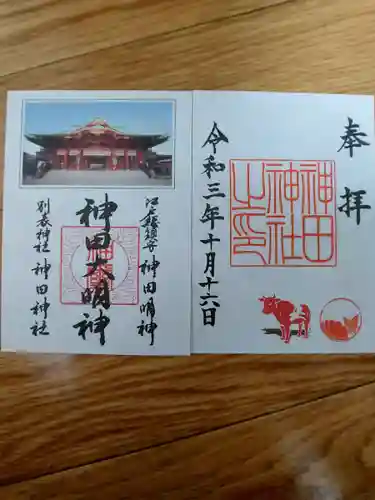 奉拝
神田
神社
之印
令和三年十月十六日
江戸総鎮守 神田明神
神田大明神
別表神社 神田神社